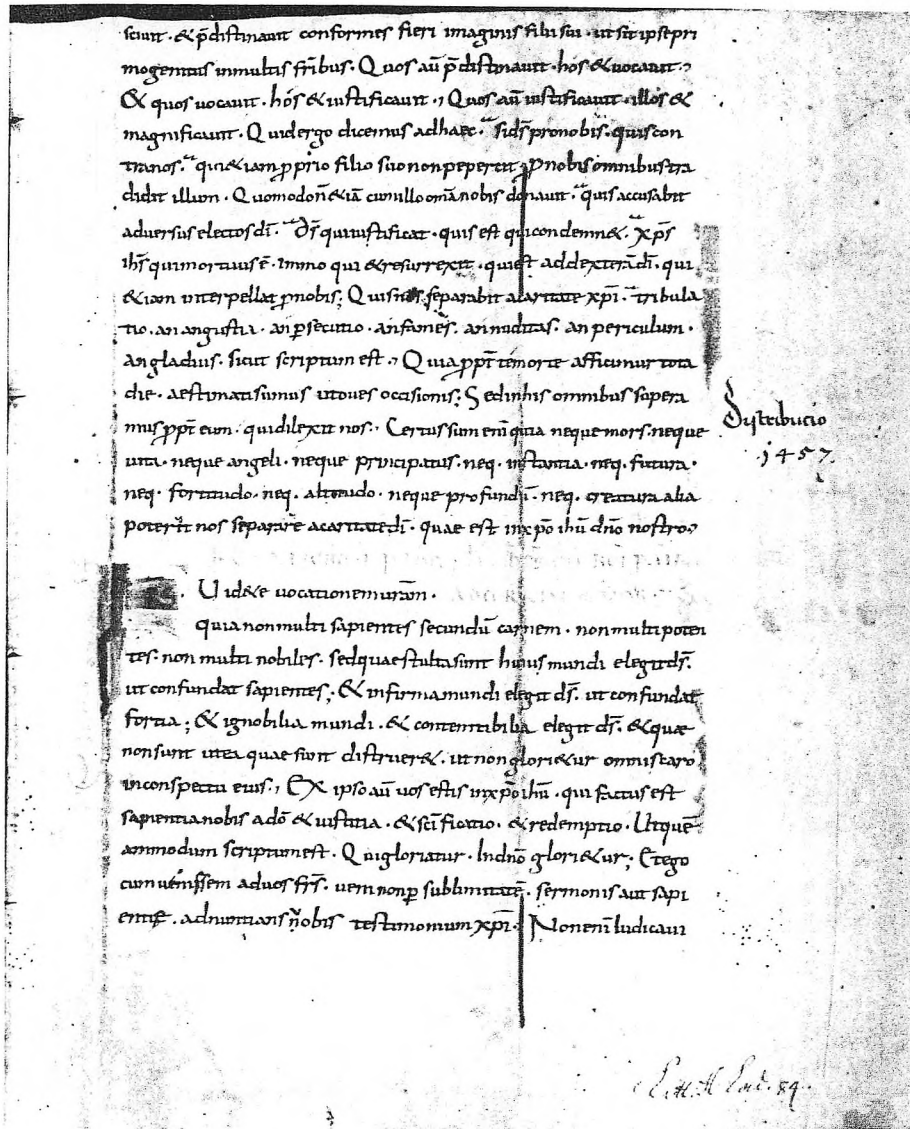 sciuit · & p̄distinauit conformes fieri imaginis filii sui · ut sit ipse pri
mogenitus in multis fr̄ibus · Quos aū p̄distinauit · hós & vocauit ·,
& quos uocauit · hós & iustificauit ·, Quos aū iustificauit · illos &
magnificauit · Quid ergo dicemus ad haec · si d̄s pro nobis · quis con
tra nos · qui &iam proprio filio suo non pepercit · p nobis omnibus tra
didit illum · Quomodo n̄ &iā cum illo om̄a nobis donauit · quis accusabit
adversus electos d̄i · d̄s qui iustificat · quis est qui condemn& · xp̄s
ih̄s qui mortuus ē · immo qui & resurrexit · qui est ad dexterā d̄i · qui
&iam interpellat p nobis ; Quis nos separabit a caritate xp̄i · tribula
tio · an angustia · an p secutio · an famēs · an nuditas · an periculum ·
an gladius · sicut scriptum est ·, Quia ppt̄ te morte afficimur tota
die · aestimati sumus ut oues occisionis ; Sed in his omnibus supera
mus ppt̄ eum · qui dilexit nos · Certus sum enī quia neque mors · neque
uita · neque angeli · neque principatus · neq · instantia · neq · futura ·
neq · fortitudo · neq · altitudo · neque profundū · neq · creatura alia
poterit nos separare a caritate d̄i · quae est in xp̄o ih̄u dn̄o nostro ·,
Distribucio
1457
Uid&e uocationem ur̄am ·
quia non multi sapientes secundū carnem · non multi poten
tes · non multi nobiles · sed quae stulta sunt huius mundi elegit d̄s ·
ut confundat sapientes ; & infirma mundi elegit d̄s · ut confundat
fortia ; & ignobilia mundi · & contemtibilia elegit d̄s · & quae
non sunt ut ea quae sunt distruer& · ut non glori&ur omnis caro
in conspectu eius ·, Ex ipso aū uos estis in xp̄o ih̄u · qui factus est
sapientia nobis a dō & iustitia · & sc̄ificatio · & redemptio · Ut quē
ammodum scriptum est · Qui gloriatur · In dn̄o glori&ur ; Et ego
cum uenissem ad uos fr̄s · ueni non p sublimitatē · sermonis aut sapi
entie · adnuntians uobis testimonium xp̄i · Non enī Iudicaui